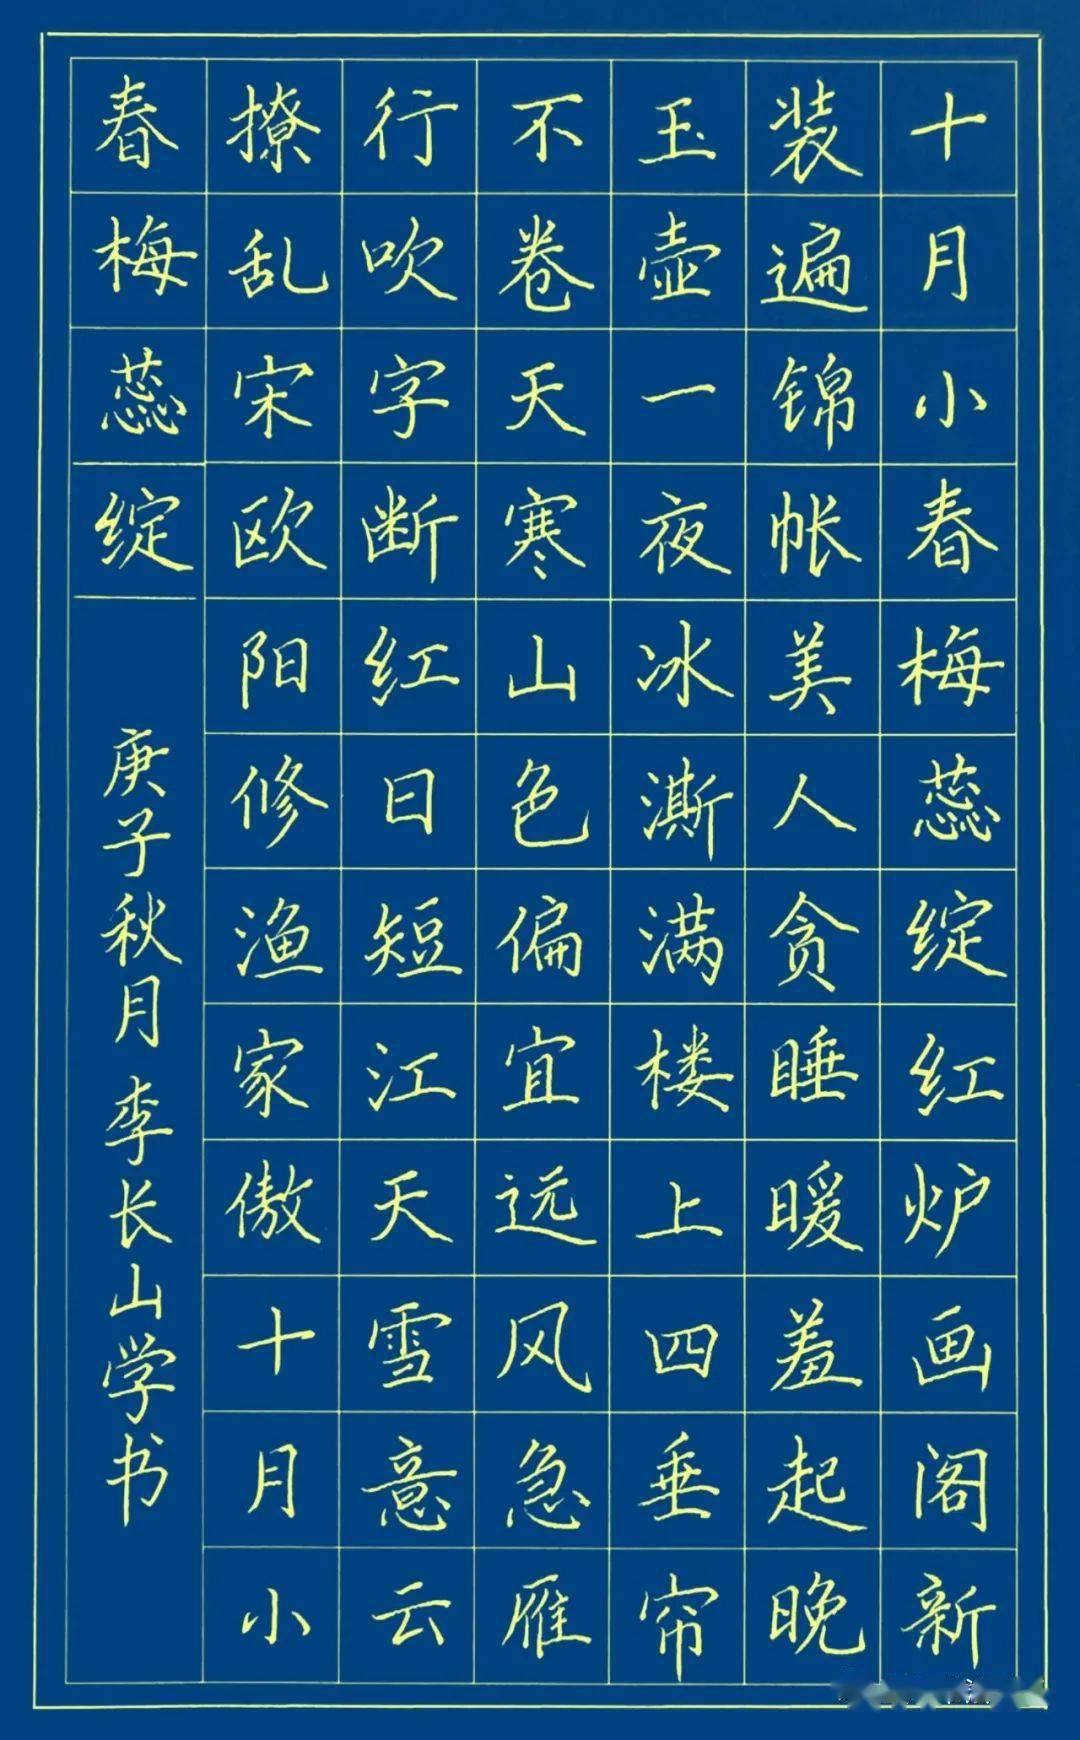 十月小春梅蕊绽红炉画阁新
装遍锦帐美人贪睡暖羞起晚
玉壶一夜冰澌满楼上四垂帘
不卷天寒山色偏宜远风急雁
行吹字断红日短江天雪意云
撩乱宋欧阳修渔家傲十月小
春梅蕊绽
庚子秋月李长山学书